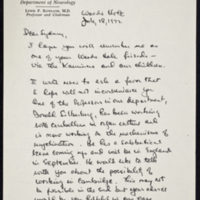 Department of Neurology
Lewis P. Rowland, M.D.
Professor and Chairman
Woods Hole
July 18, 1972
Dear Sydney,
I hope you will remember me as
one of your Woods Hole friends—
via the and our children.
It will seem to ask a favor that
I hope will not inconvenience you.
One of the Professors in our department,
Donald Silberberg, has been working
with cerebellum in organ culture and
is now working on the mechanisms of
myelination. He has a sabbatical
year coming and will be in England
in September. He would like to talk
with you about the possibility of
working in Cambridge. This may not
be possible in the end but your advice
would be very helpful in any case.